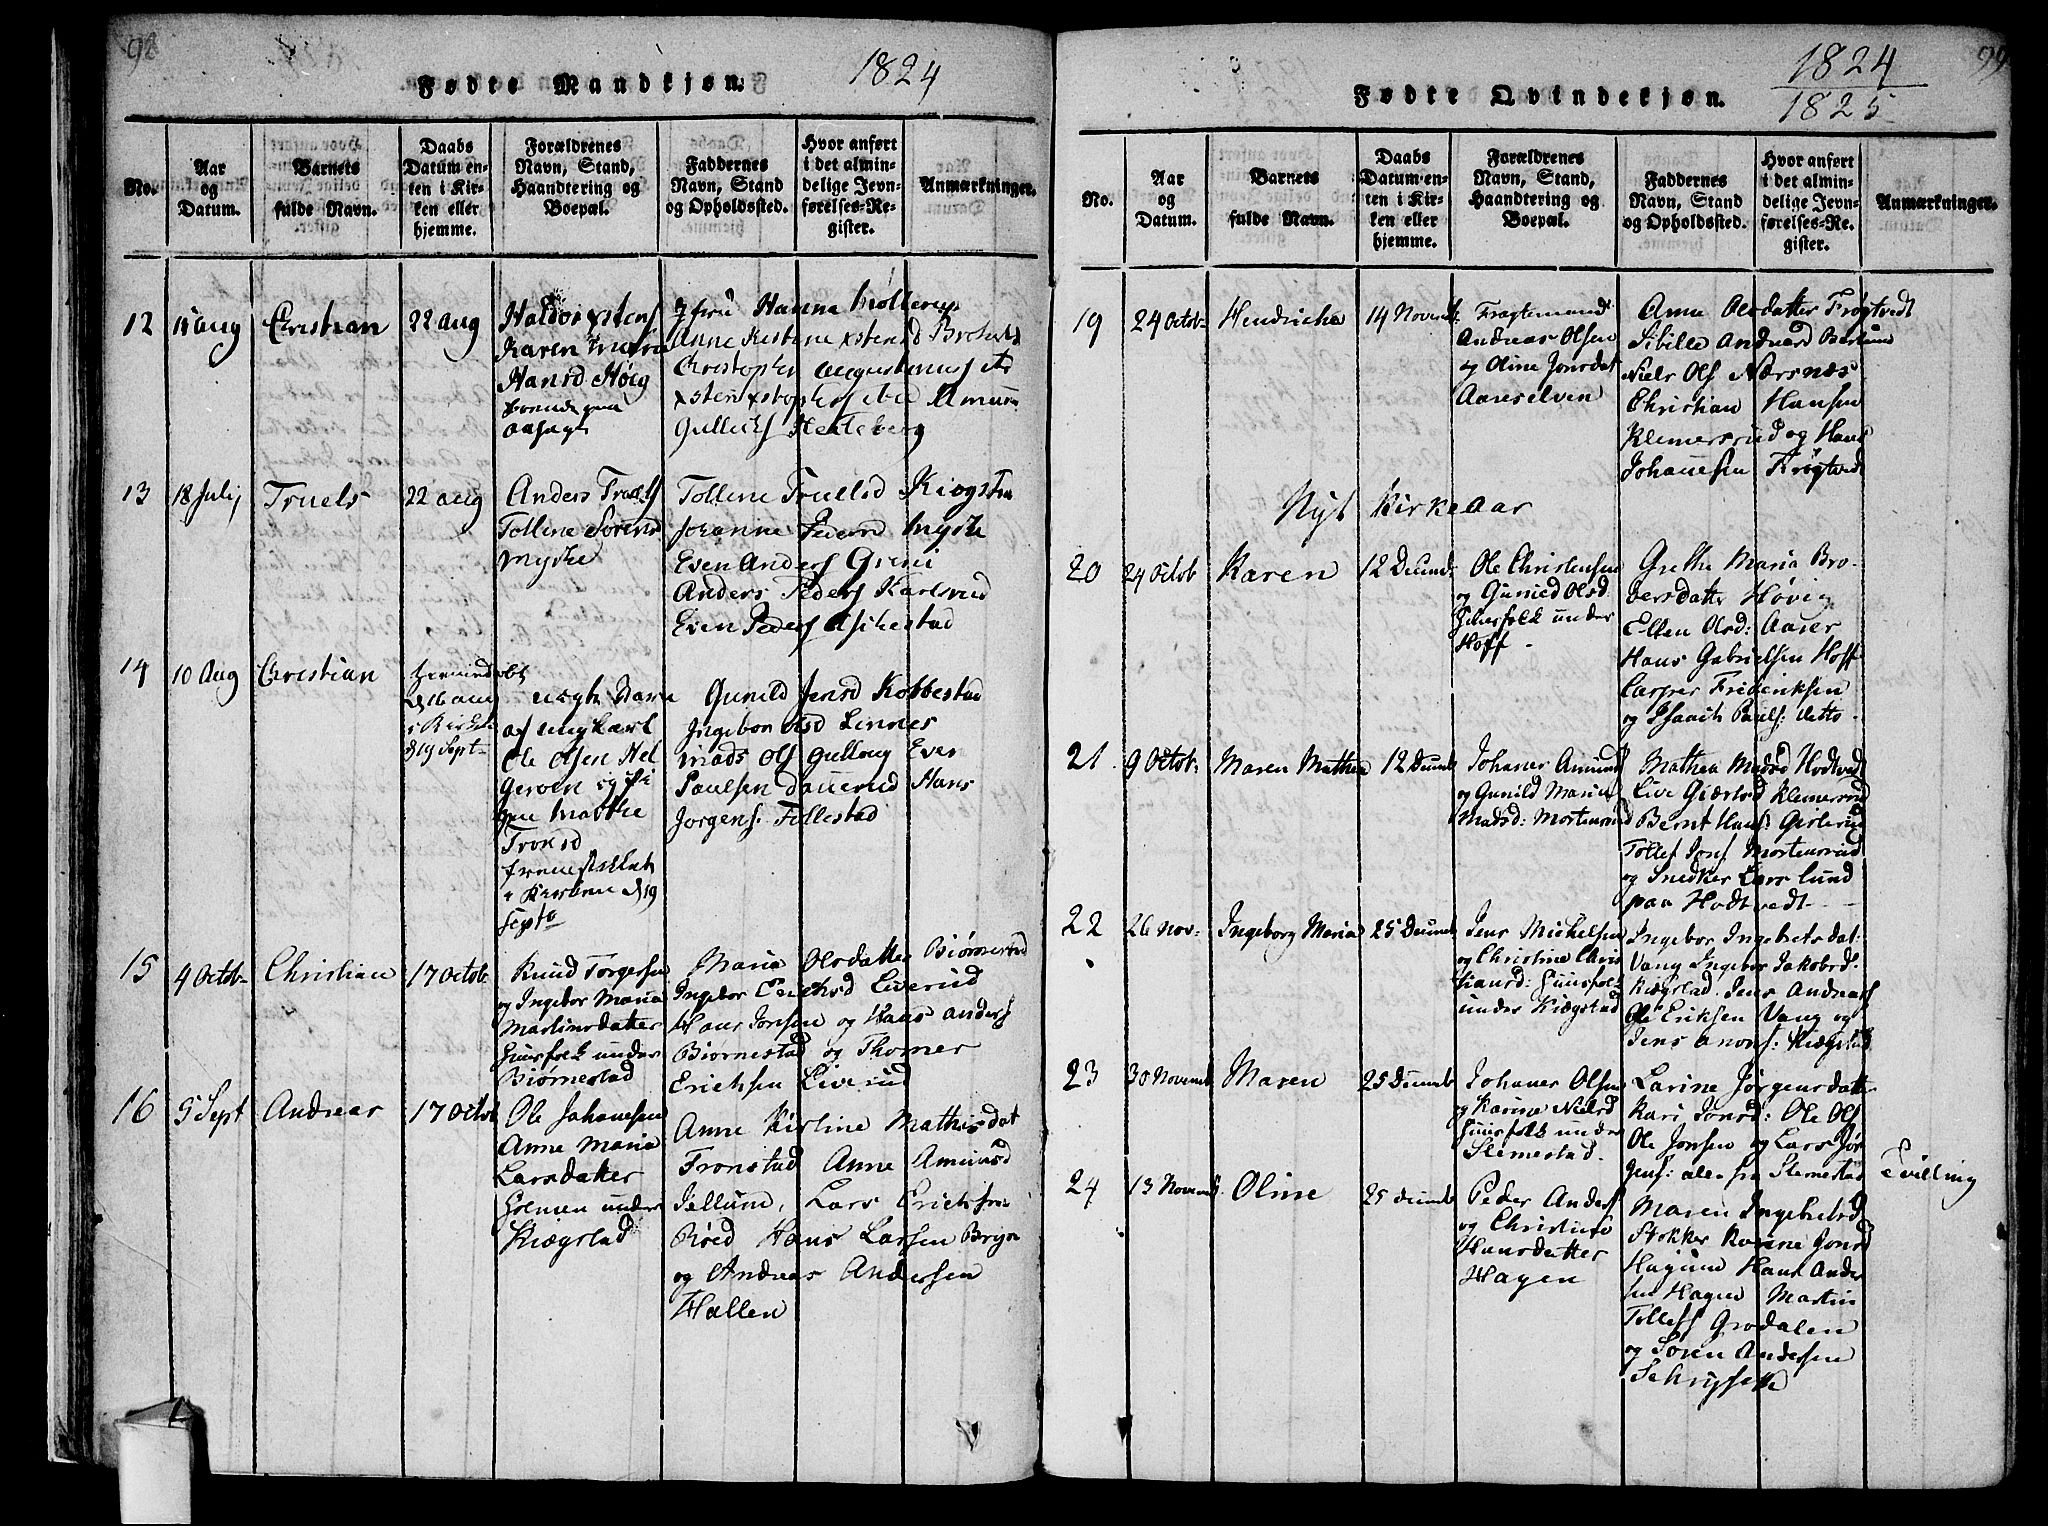 98
Fødte Mandkjøn.
1824
No.
Aar og Datum.
Barnets fulde Navn.
Daabs Datum enten i Kirken eller hjemme.
Forældrenes Navn, Stand, Haandtering og Boepæl.
Faddernes Navn, Stand og Opholdssted.
Hvor anført i det almindelige Jevnførelses-Register.
Anmærkninger.
12
15 aug
Christian
22 aug
Karen Maria
Hansd Høeg
Jfru Hanna Møllerup
Anne Kestine
Christopher augustinus
Gullichs Hekleberg
13
18 Julij
Truels
22 aug
Anders Truels
Tollene Sørensd
Myhre
Tollene Truelsd Kiøgstu
Johanne Pedersd Myhre
Even Anders Greni
Anders Peders Karlsrud
Even Peders Askestad
14
10 Aug
Christian
d 16 aug
i Kirken
d 19 Sept
uegte Barn
af ungkarl
Ole Olsen Hel
geroen og Pi
gen Marthe
Tronsd
i Kirken d 19
Septb
Gunild Jensd Kobbestad
Ingebor Olsd Linnes
Mads Ols Gullaug Even
Paulsen Dauerud Hans
Jørgens. Fillestad
15
4 Octob
Christian
17 Octob
Knud Torgersen
og Ingebor Maria
Martinsdatter
Huusfolk under
Biørnestad
Maria Olsdatter Biørnestad
Ingebor Erichsd Liverud
Hans Jonsen og Hans Anders
Biørnestad og Thomes
Erichsen Liverud
16
5 Sept
Andreas
17 Octob
Ole Johanesen
Anne Maria
Larsdatter
Holmen under
Kiøgstad
Anne Kistine Mathisdat
Tronstad Anne Amundsd
Jellum, Lars Erichs fra
Røed Hans Larsen Brijn
og Andreas Andersen
Hallen
99
Fødte Qvindekjøn.
1824
1825
No.
Aar og Datum.
Barnets fulde Navn.
Daabs Datum enten i Kirken eller hjemme.
Forældrenes Navn, Stand, Haandtering og Boepæl.
Faddernes Navn, Stand og Opholdssted.
Hvor anført i det almindelige Jevnførelses-Register.
Anmærkninger.
19
24 Octob
Hendricha
14 Novemb
Fragtemand
Andreas Olsen
og Oline Jonsdat
Aaroselven
Anne Olsdatter Frøgtvedt
Sibille Andrea
Niels Ols Nærsnæs
Christian Hansen
Klemersrud og Hans
Johanesen Frøgtvedt
Nyt Kirkeaar
20
24 Octob
Karen
12 Decemb
Ole Christensen
og Gunild Olsd
Huusfolk under
Hoff
Grethe Maria Bro-
versdatter Høvig
Ellen Olsd: Aaser
Hans Gabrielsen Hoff
Casper Frideriksen
og Isaach Pauls: ditto
21
9 Octob
Maren Mathea
12 Decemb
Johanes Amunds
og Gunild Maria
Madsd: Mortensrud
Mathea Madsd Hodtved
Live Giærtsd Klemersrud
Bernt Hans: Gisterud
Tollef Jons Mortensrud
og Snedker Lars Lund
paa Hodtvedt
22
26 Nov
Ingeborg Maria
25 Decemb
Jens Michelsen
og Christine Chris
tiansd: Huusfolk
under Kiøgstad
Ingebor Ingebretsdat:
Vang Ingebor Jakobsd:
Kiøgstad. Jens Andreas
Ole Eriksen Vang og
Jens Arons: Kiøgstad
23
30 Novemb
Maren
25 Decemb
Johanes Olsen
og Karine Nielsd
Huusfolk under
Slemestad
Larine Jørgensdatter
Kari Jonsd: Ole Ols
Ole Jonsen og Lars Jør
gens: alle fra Slemestad
Tvilling
24
13 Novemb
Oline
25 Decemb
Peder Anders
og Christine
Hansdatter
Hagen
Maren Ingebretsd
Stokker Karine Jonsd
Hagum Hans Ander
sen Hagen Martin
Tollefs Grodalen
og Søren Andersen
Schrysette